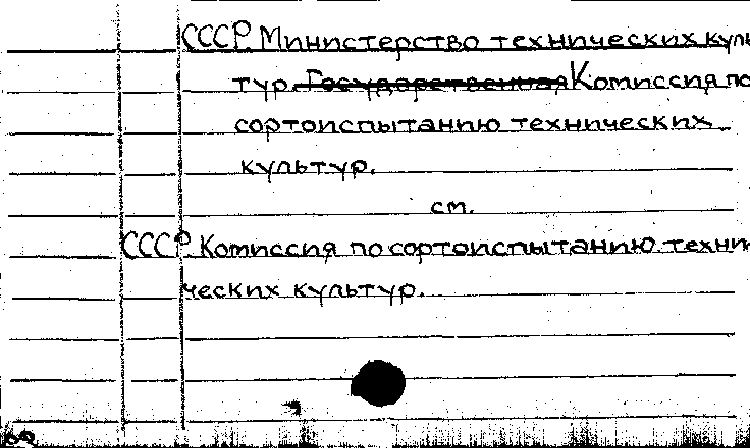 СССР. Министерство технических куль
тур. Государственная Комиссия по
сортоиспытанию технических
культур.
см.
СССР. Комиссия по сортоиспытанию техни
ческих культур.